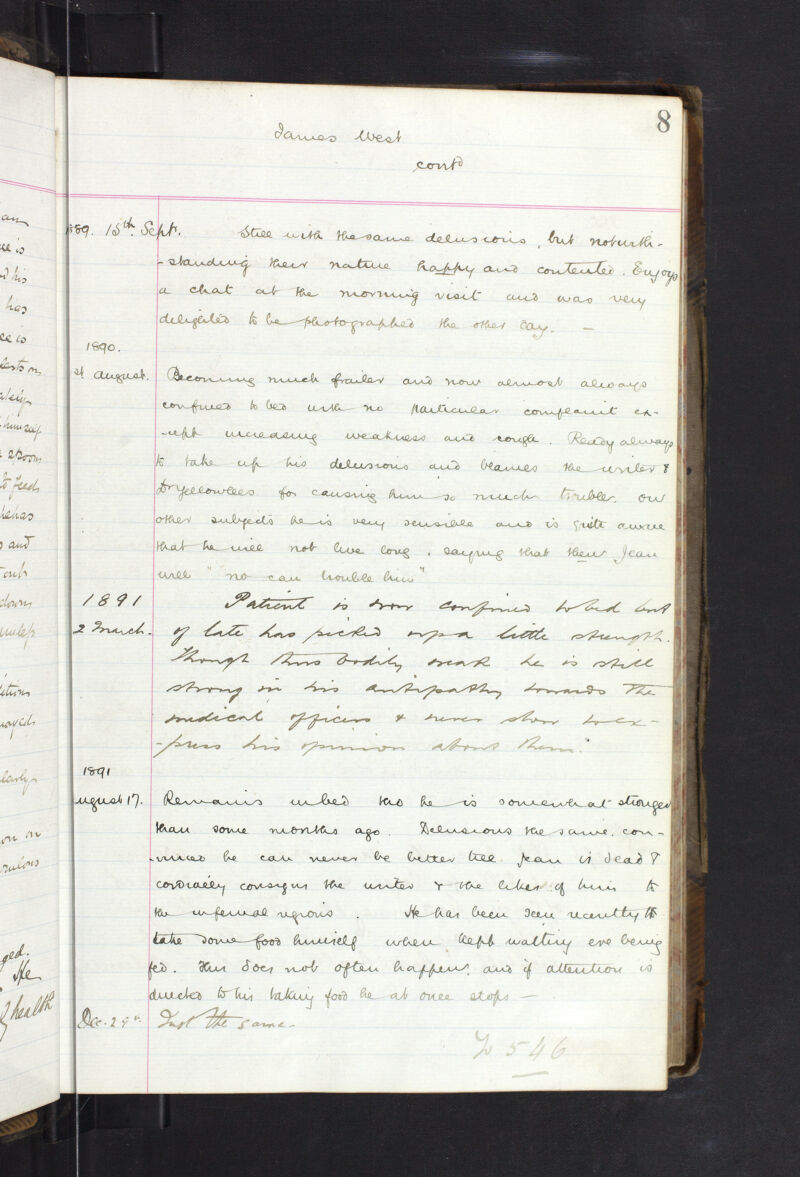 8
James West
contd
1889. 15th. Sept. Still with the same delusions, but notwith-
-standing their nature happy and contented. Enjoys
a chat at the morning visit and was very
delighted to be photographed the other day. —
1890.
August. Becoming much frailer and now almost always
confined to bed with no particular complaint ex-
-cept increasing weakness and cough. Ready always
to take up his delusions and blames the writer &
Dr Yellowlees for causing him so much trouble. On
other subjects he is very sensible and is quite aware
that he will not live long, saying that then Jean
will "no can trouble him"
1891
2 March. Patient is now confined to bed but
of late has picked up a little strength.
Though thus bodily weak he is still
strong in his antipathy towards the
medical officers & never slow to ex-
-press his opinion about them.
1891
August 17. Remains in bed tho he is somewhat stronger
than some months ago. Delusions the same, con-
-vinced he can never be better till Jean is dead &
cordially consigns the writer & the likes of him to
the infernal regions. He has been seen recently to
take some food himself when kept waiting ere being
fed. This does not often happen, and if attention is
directed to his taking food he at once stops —
Dec. 29th. Just the same.
To 546
an
has
to feed
has
and
down
ged.
He
health